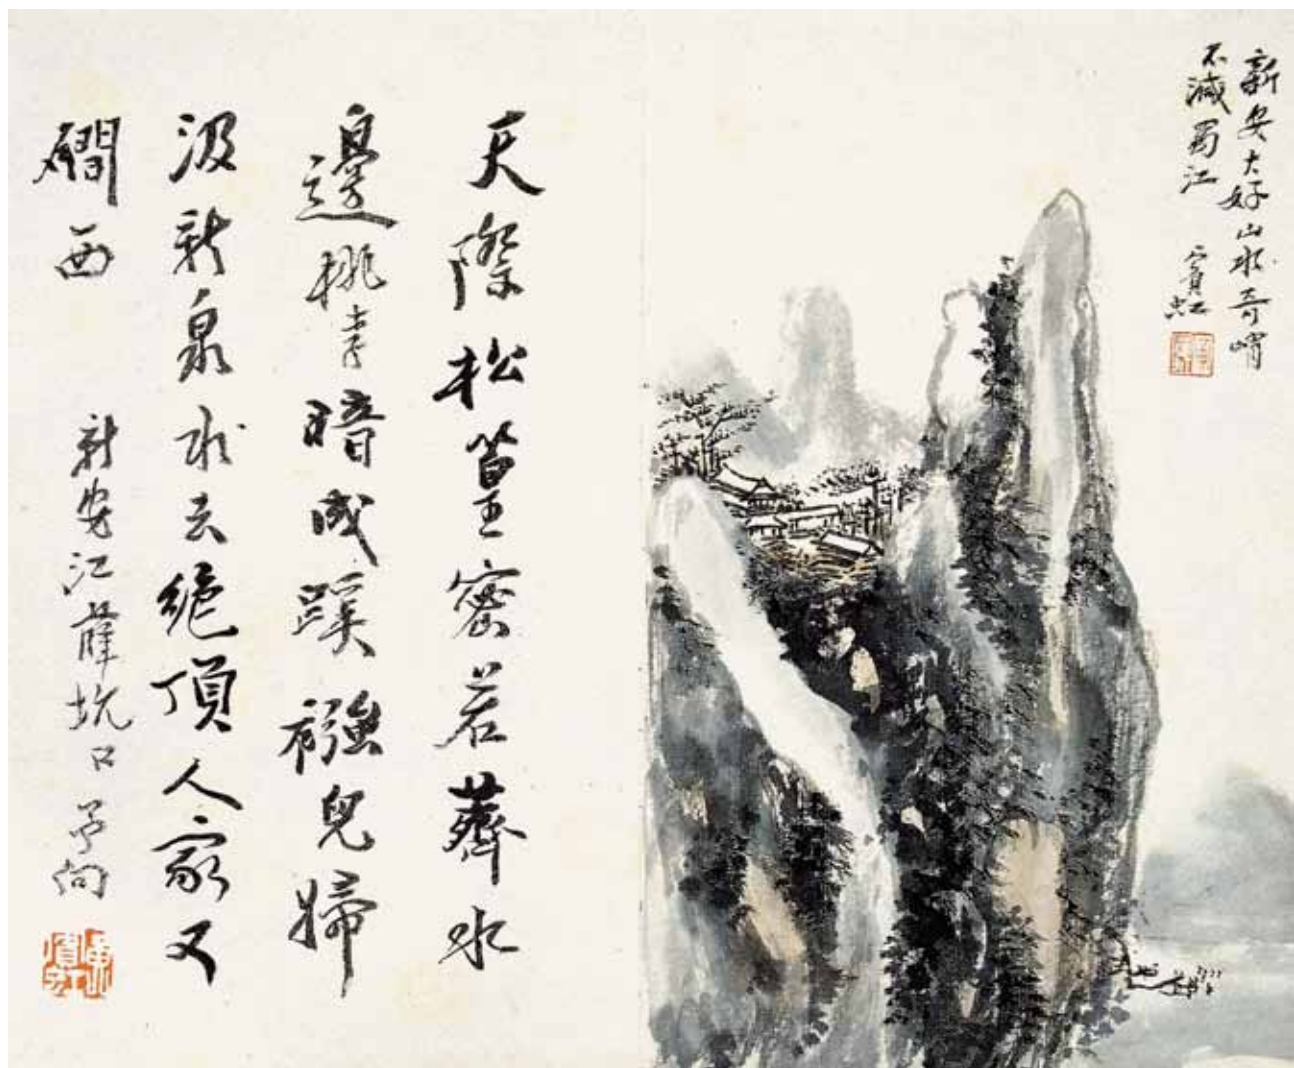 新安大好山水奇峭
不減蜀江 賓虹
天際松篁密若薺水
邊桃李暗成蹊襁兒婦
汲新泉水去絕頂人家又
磵西 新安江薛坑口 予向
黃賓虹